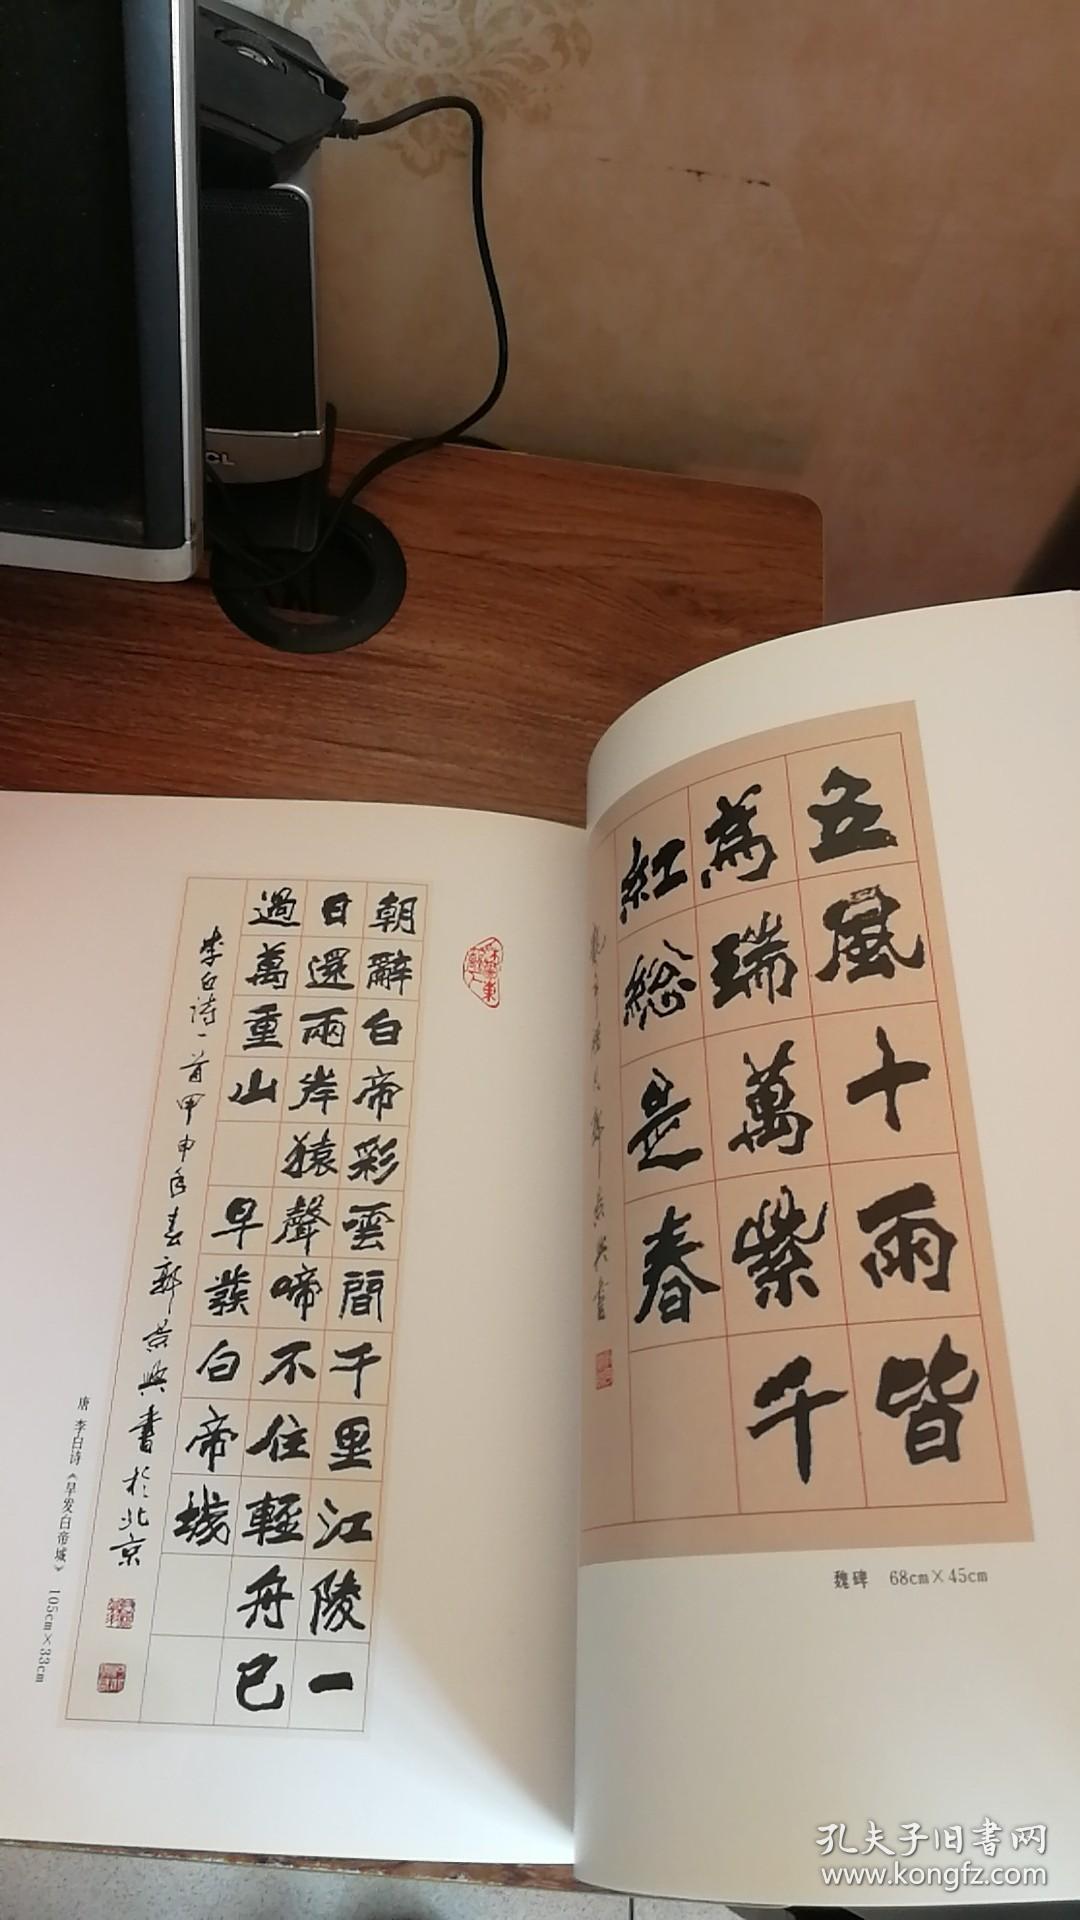 朝辭白帝彩雲間千里江陵一
日還兩岸猿聲啼不住輕舟已
過萬重山 早發白帝城
李白诗一首甲申年春郭景興書於北京
唐 李白诗《早发白帝城》 105cm×33cm
五風十雨皆
為瑞萬紫千
紅總是春
魏碑 68cm×45cm
CL
孔夫子旧書网
www.kongfz.com